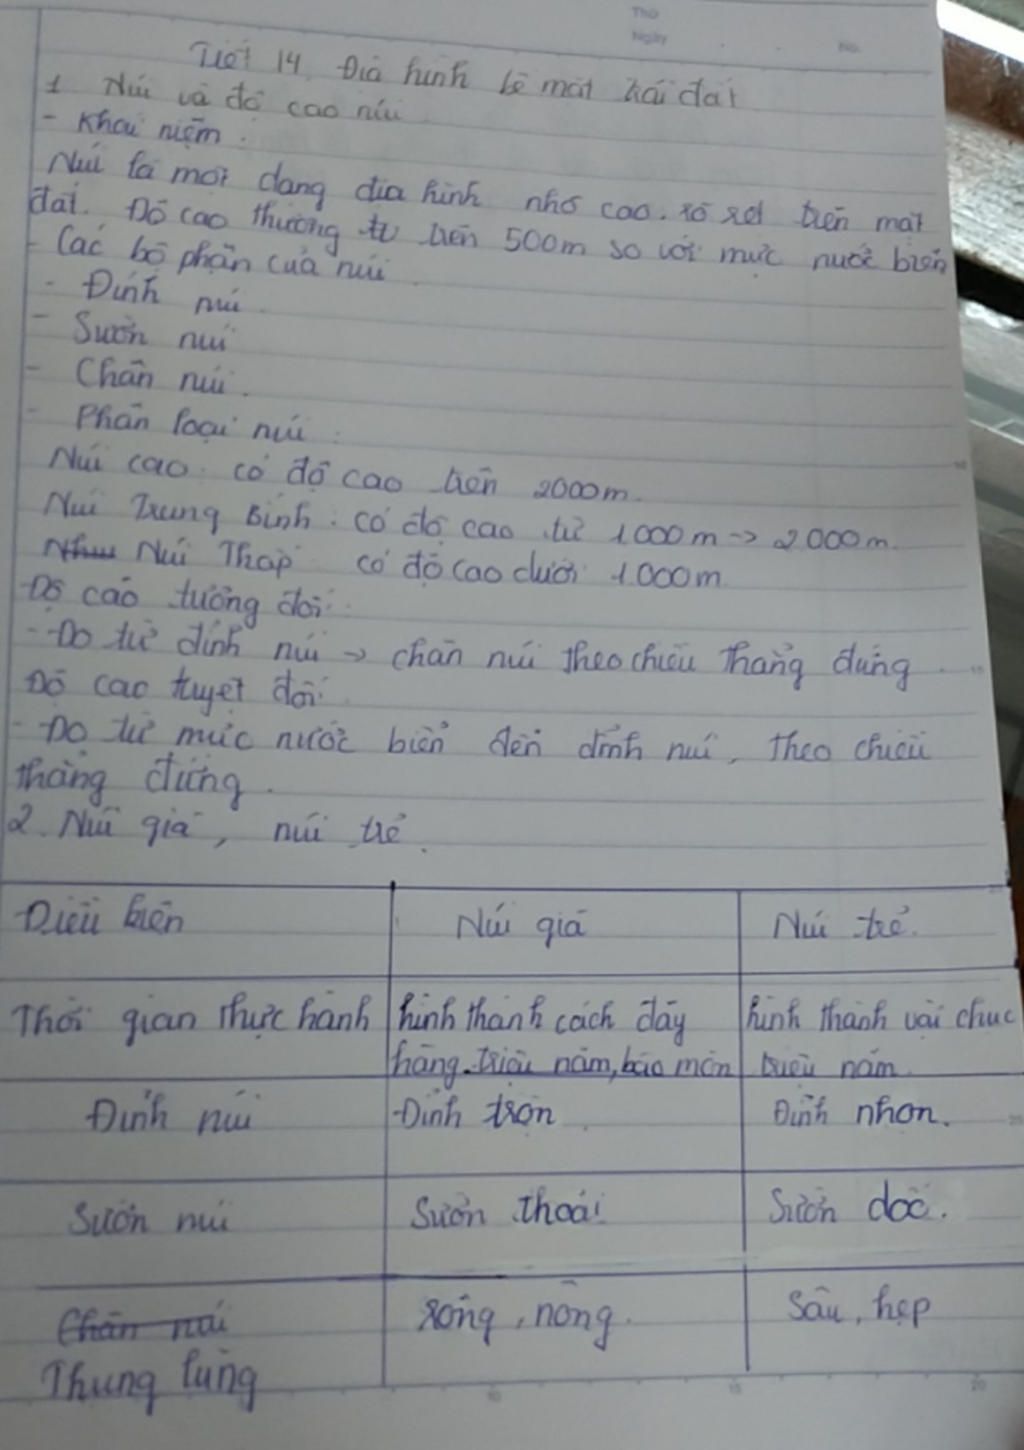 Thứ
Ngày
No.
Tiết 14 Địa hình bề mặt trái đất
1 Núi và độ cao núi
- Khái niệm.
Núi là một dạng địa hình nhô cao. rõ rệt trên mặt
đất. Độ cao thường từ trên 500m so với mực nước biển
- Các bộ phận của núi
- Đỉnh núi
- Sườn núi
- Chân núi.
- Phân loại núi:
Núi cao: có độ cao trên 2000m.
Núi Trung Bình: có độ cao từ 1000m -> 2000m.
Núi Thấp có độ cao dưới 1000m
Độ cao tương đối:
- Đo từ đỉnh núi -> chân núi theo chiều thẳng đứng.
Độ cao tuyệt đối:
- Đo từ mực nước biển đến đỉnh núi, theo chiều
thẳng đứng.
2. Núi già, núi trẻ.
Điều kiện Núi già Núi trẻ.
Thời gian thực hành hình thành cách đây hình thành vài chục
hàng triệu năm, bào mòn triệu năm.
Đỉnh núi -Đỉnh tròn. Đỉnh nhọn.
Sườn núi Sườn thoải Sườn dốc.
Chân núi rộng, nông. Sâu, hẹp
Thung lũng
10 15 20